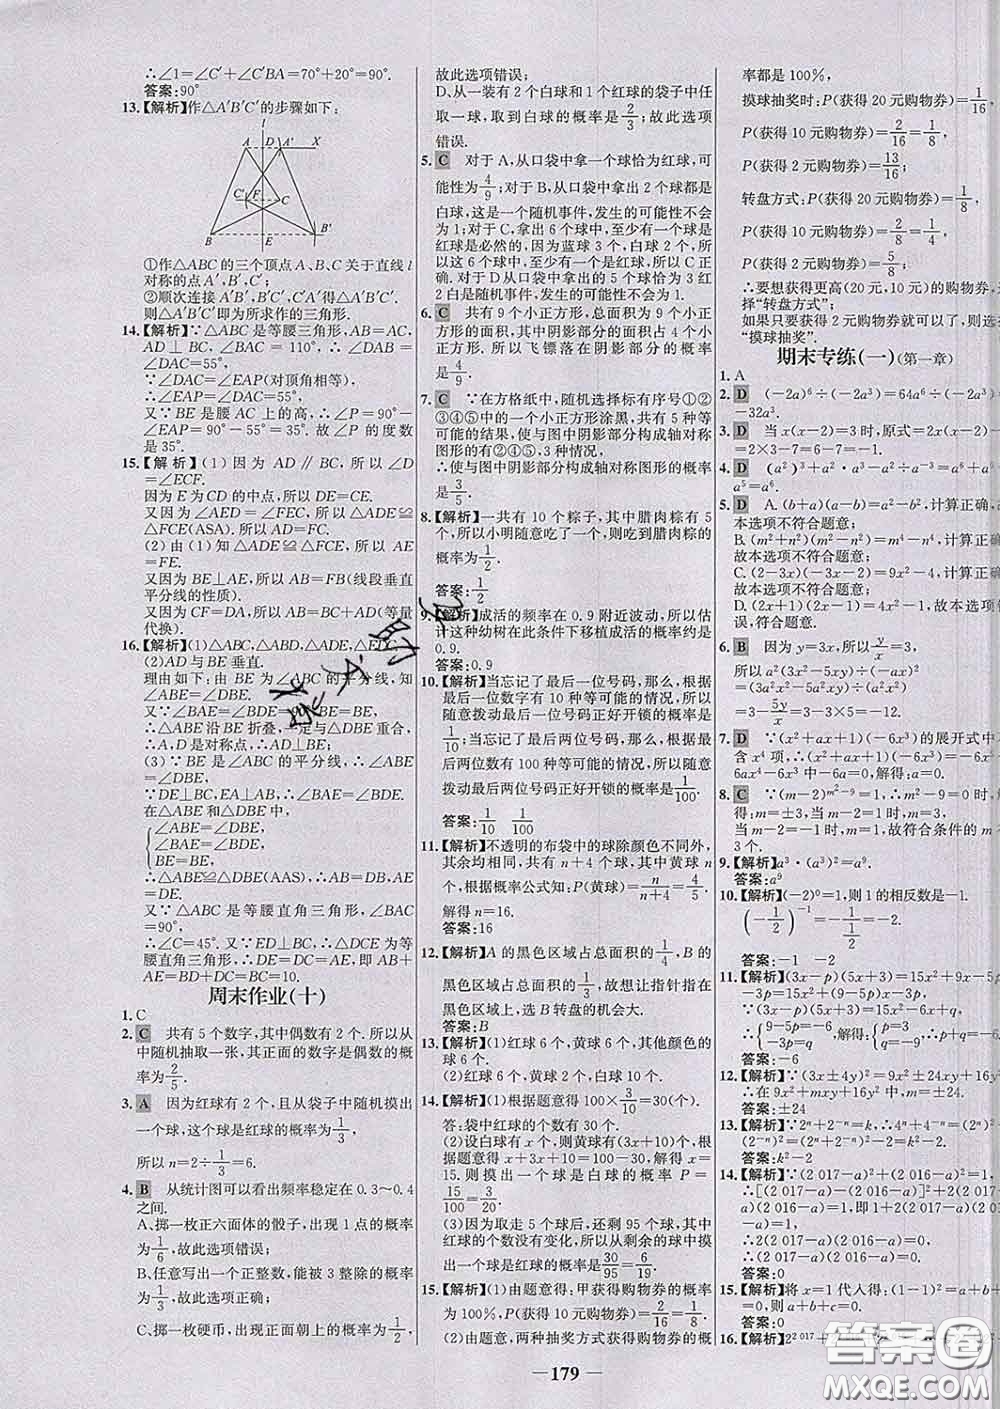 ∴∠1=∠C′+∠C′BA=70°+20°=90°.
答案:90°
13.【解析】作△A′B′C′的步骤如下:
l
A D A′ X
C′ E C
B E B′
①作△ABC的三个顶点A、B、C关于直线l
对称的点A′,B′,C′;
②顺次连接A′B′,B′C′,C′A′得△A′B′C′.
则△A′B′C′即为所求作的三角形.
14.【解析】∵△ABC是等腰三角形,AB=AC,
AD⊥BC,∠BAC=110°,∴∠DAB=
∠DAC=55°.
∵∠DAC=∠EAP(对顶角相等),
∴∠EAP=∠DAC=55°,
又∵BE是腰AC上的高,∴∠P=90°-
∠EAP=90°-55°=35°.故∠P的度数
是35°.
15.【解析】(1)因为AD∥BC,所以∠D
=∠ECF.
因为E为CD的中点,所以DE=CE.
又因为∠AED=∠FEC,所以△ADE≌
△FCE(ASA).所以AD=FC.
(2)由(1)知△ADE≌△FCE,所以AE
=FE.
又因为BE⊥AE,所以AB=FB(线段垂直
平分线的性质).
又因为CF=DA,所以AB=BC+AD(等量
代换).
16.【解析】(1)△ABC,△ABD,△ADE,△EDC.
(2)AD与BE垂直.
理由如下:由BE为∠ABC的平分线,知
∠ABE=∠DBE.
又∵∠BAE=∠BDE=90°,BE=BE,
∴△ABE沿BE折叠,一定与△DBE重合,
∴A,D是对称点,∴AD⊥BE;
(3)∵BE是∠ABC的平分线,∴∠ABE=
∠DBE.
∵DE⊥BC,EA⊥AB,∴∠BAE=∠BDE.
在△ABE和△DBE中,
∠ABE=∠DBE,
∠BAE=∠BDE,
BE=BE,
∴△ABE≌△DBE(AAS),∴AB=BD,AE
=DE.
又∵△ABC是等腰直角三角形,∠BAC
=90°,
∴∠C=45°.又∵ED⊥BC,∴△DCE为等
腰直角三角形,∴DE=DC=AE,即AB+
AE=BD+DC=BC=10.
周末作业(十)
1. C
2. C 共有5个数字,其中偶数有2个.所以从
中随机抽取一张,其正面的数字是偶数的概
率为2/5.
3. A 因为红球有2个,且从袋子中随机摸出
一个球,这个球是红球的概率为1/3,
所以n=2÷1/3=6.
4. B 从统计图可以看出频率稳定在0.3~0.4
之间.
A、掷一枚正六面体的骰子,出现1点的概率
为1/6,故此选项错误;
B、任意写出一个正整数,能被3整除的概率
为1/3,故此选项正确;
C、掷一枚硬币,出现正面朝上的概率为1/2,
故此选项错误;
D、从一装有2个白球和1个红球的袋子中任
取一球,取到白球的概率是2/3;故此选项
错误.
5. C 对于A,从口袋中拿一个球恰为红球,可
能性为4/9;对于B,从口袋中拿出2个球都是
白球,这是一个随机事件,发生的可能性不会
为1;对于C,拿出6个球中,至少有一个球是
红球是必然的,因为蓝球3个,白球2个,所
以至少有一个是红球,所以C正确.
对于D从口袋中拿出的5个球恰为3红
2白是随机事件,发生的可能性不会为1.
6. C 共有9个小正方形,总面积为9个小正
方形的面积,其中阴影部分的面积占4个小
正方形.所以飞镖落在阴影部分的概率
是4/9.
7. C ∵在方格纸中,随机选择标有序号①②
③④⑤中的一个小正方形涂黑,共有5种等
可能的结果,使与图中阴影部分构成轴对称
图形的有②④⑤,3种情况,
∴使与图中阴影部分构成轴对称图形的概率
是3/5.
8.【解析】一共有10个粽子,其中腊肉粽有5
个,所以小明随意吃了一个,则吃到腊肉粽的
概率为1/2.
答案:1/2
9.【解析】成活的频率在0.9附近波动,所以估
计这种幼树在此条件下移植成活的概率约是
0.9.
答案:0.9
10.【解析】当忘记了最后一位号码,那么,根据
最后一位数字有10种等可能的情况,所以
随意拨动最后一位号码正好开锁的概率是
1/10;当忘记了最后两位号码,那么,根据最后
两位数字有100种等可能的情况,所以随意
拨动最后两位号码正好开锁的概率是1/100.
答案:1/10 1/100
11.【解析】不透明的布袋中的球除颜色不同外,
其余均相同,共有n+4个球,其中黄球n
个,根据概率公式知:P(黄球)=n/(n+4)=4/5.
解得n=16.
答案:16
12.【解析】A的黑色区域占总面积的1/4,B的
黑色区域占总面积的1/3,故想让指针指在
黑色区域,选B转盘的机会大.
答案:B
13.【解析】(1)红球6个,黄球6个,其他颜色的
球6个.
(2)红球6个,黄球2个,白球10个.
14.【解析】(1)根据题意得100×3/10=30(个).
答:袋中红球的个数有30个.
(2)设白球有x个,则黄球有(3x+10)个,根
据题意得x+3x+10=100-30,解得x=
15.则摸出一个球是白球的概率P=
15/100=3/20.
(3)因为取走5个球后,还剩95个球,其中
红球的个数没有变化,所以从剩余的球中摸
出一个球是红球的概率30/95=6/19.
15.【解析】(1)由题意得:甲获得购物券的概率
为100%,P(获得10元购物券)=2/16=1/8;
(2)由题意,两种抽奖方式获得购物券的概
率都是100%,
摸球抽奖时:P(获得20元购物券)=1/16,
P(获得10元购物券)=2/16=1/8,
P(获得2元购物券)=13/16,
转盘方式:P(获得20元购物券)=1/8,
P(获得10元购物券)=2/8=1/4,
P(获得2元购物券)=5/8;
∴要想获得更高(20元,10元)的购物券,选
择“转盘方式”;
如果只要获得2元购物券就可以了,则选
“摸球抽奖”.
期末专练(一)(第一章)
1. A
2. D (-2a)⁶÷(-2a³)=64a⁶÷(-2a³)=
-32a³.
3. D 当x(x-2)=3时,原式=2x(x-2)-
=2×3-7=6-7=-1.
4. D (a²)³+a²·a³-a²÷a⁻³=a⁶+a⁵-
a⁵=a⁶.
5. D A.(b+a)(a-b)=a²-b²,计算正确,
本选项不符合题意;
B.(m²+n²)(m²-n²)=m⁴-n⁴,计算正
故本选项不符合题意;
C.(2-3x)(-3x-2)=9x²-4,计算正
故本选项不符合题意;
误,符合题意.
6. B 因为y=3x,所以y/x=3,
所以a²(3x²-5xy)÷(-ax)²
=(3a²x²-5a²xy)÷a²x²
=3-5y/x=3-3×5=-12.
7. D ∵(x²+ax+1)(-6x³)的展开式中
含x⁴项,∴(x²+ax+1)(-6x³)=-
6ax⁴-6x³中-6a=0,解得:a=0.
8. C ∵(m-2)^(m²-9)=1,∴m²-9=0时,
得:m=±3,当m-2=1时,m=3,
当m-2=-1时,m=1,故符合条件的m
3个.
9.【解析】a³·(a³)²=a⁹.
答案:a⁹
10.【解析】(-2)⁰=1,则1的相反数是-1.
(-1/2)⁻¹=1/(-1/2)=-2.
答案:-1 -2
11.【解析】(3x-p)(5x+3)=15x²+9x-5p
-3p=15x²+(9-5p)x-3p,
∴9-5p=-6,-3p=q,解得:p=3,q=-9,∴p+q=-6.
答案:-6
12.【解析】∵(3x±4y)²=9x²±24xy+16y²,
∴在9x²+mxy+16y²中,m=±24.
答案:±24
13.【解析】∵2ⁿ+2⁻ⁿ=k,∴4ⁿ+4⁻ⁿ=(2ⁿ)²+
(2⁻ⁿ)²=(2ⁿ+2⁻ⁿ)²-2=k²-2.
答案:k²-2
14.【解析】∵(2 017-a)²+(2 016-a)²=1,
∴[(2 017-a)-(2 016-a)]²+2(2
-a)(2 016-a)=1,即1+2(2 017-a)(2
∴2(2 017-a)(2 016-a)=0,
∴(2 017-a)(2 016-a)=0.
答案:0
15.【解析】将x=1代入得:(1-1)²=a+b+
=0,则a+b+c=0.
答案:0
16.【解析】
— 179 —
答案圈
MXQE.COM